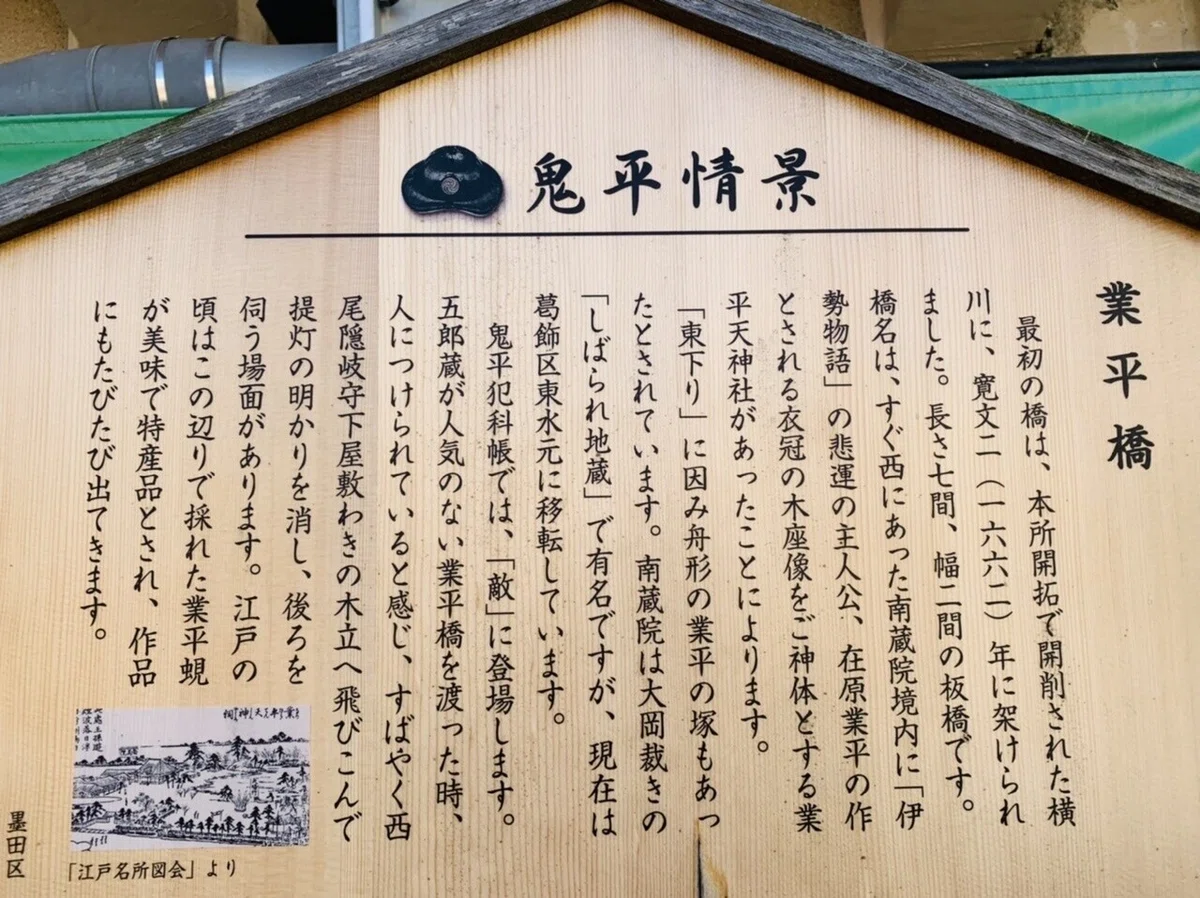 鬼平情景
業平橋
最初の橋は、本所開拓で開削された横
川に、寛文二（一六六二）年に架けられ
ました。長さ七間、幅二間の板橋です。
橋名は、すぐ西にあった南蔵院境内に「伊
勢物語」の悲運の主人公、在原業平の作
とされる衣冠の木座像をご神体とする業
平天神社があったことによります。
「東下り」に因み舟形の業平の塚もあっ
たとされています。南蔵院は大岡裁きの
「しばられ地蔵」で有名ですが、現在は
葛飾区東水元に移転しています。
鬼平犯科帳では、「敵」に登場します。
五郎蔵が人気のない業平橋を渡った時、
人につけられていると感じ、すばやく西
尾隠岐守下屋敷わきの木立へ飛びこんで
提灯の明かりを消し、後ろを
伺う場面があります。江戸の
頃はこの辺りで採れた業平蜆
が美味で特産品とされ、作品
にもたびたび出てきます。
業平天神祠
「江戸名所図会」より
墨田区